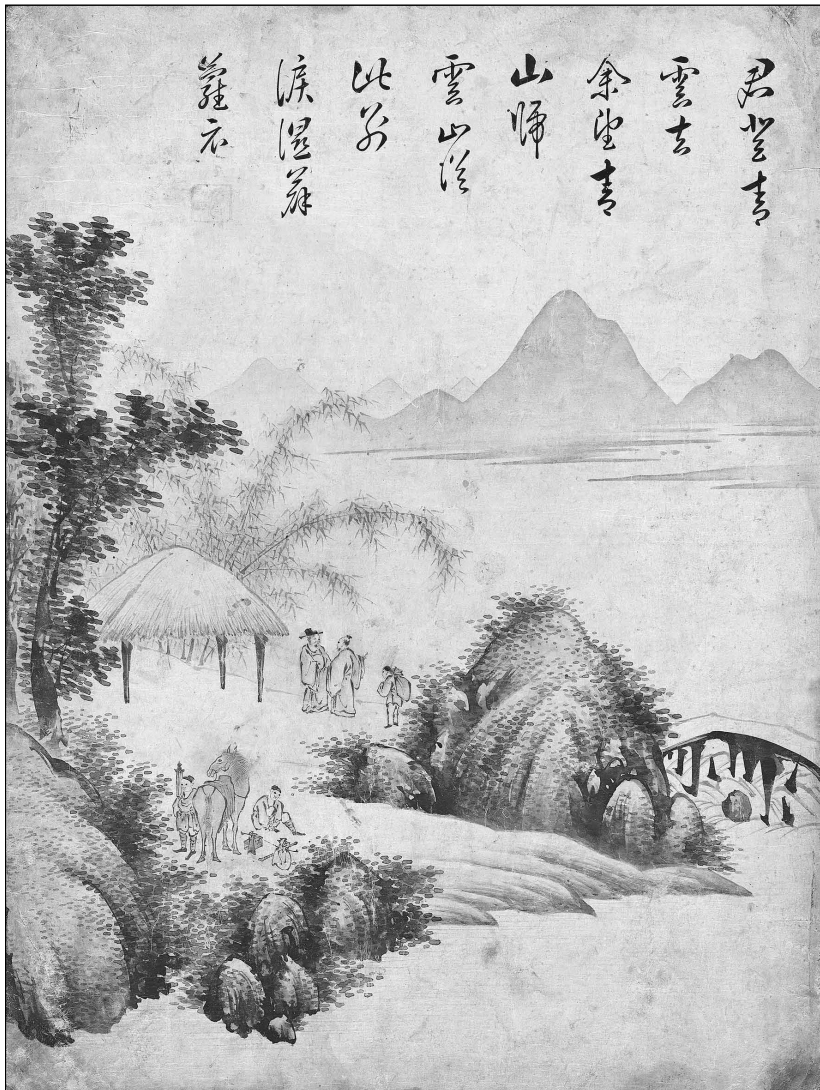 君登青
雲去
余望青
山歸
雲山從
此別
涙濕薜
蘿衣